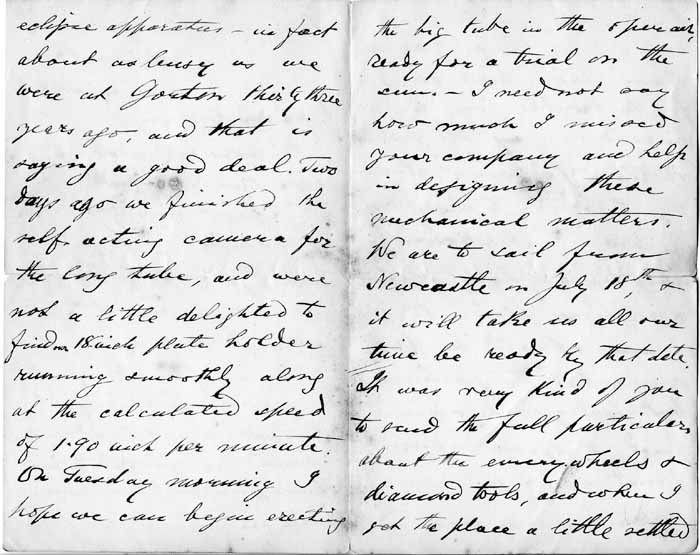 eclipse apparatus – in fact
about as busy as we
were at Gorton thirty three
years ago, and that is
saying a good deal. Two
days ago we finished the
self-acting camera for
the long tube, and were
not a little delighted to
find our 18 inch plate holder
running smoothly along
at the calculated speed
of 1.90 inch per minute.
On Tuesday morning I
hope we can begin erecting
the big tube in the open air,
ready for a trial on the
sun – I need not say
how much I missed
your company and help
in designing these
mechanical matters.
We are to sail from
Newcastle on July 18th, &
it will take us all our
time be ready by that date.
It was very kind of you
to send the full particulars
about the emery wheels &
diamond tools, and when I
get the place a little settled